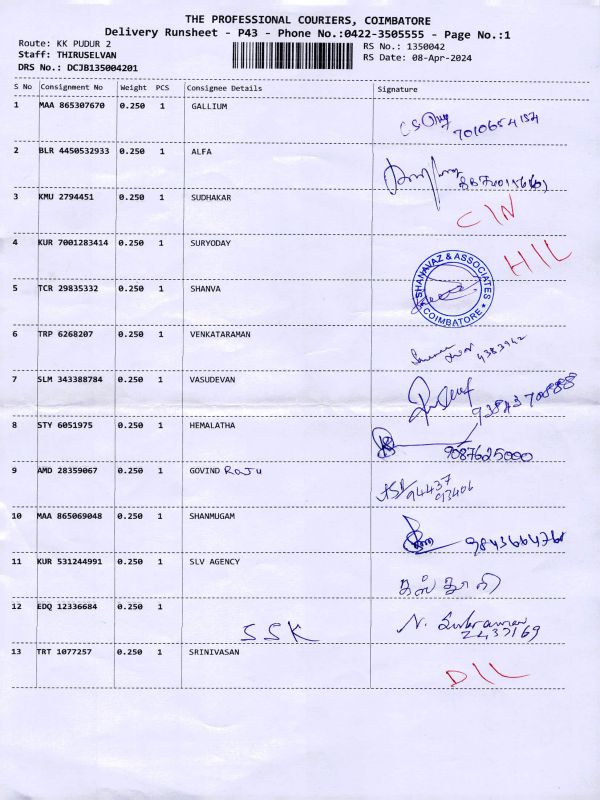 THE PROFESSIONAL COURIERS, COIMBATORE
Delivery Runsheet - P43 - Phone No.:0422-3505555 - Page No.:1
Route: KK PUDUR 2
Staff: THIRUSELVAN
DRS No.: DCJB135004201
RS No.: 1350042
RS Date: 08-Apr-2024
S No Consignment No Weight PCS Consignee Details Signature
1 MAA 865307670 0.250 1 GALLIUM
7010654154
2 BLR 4450532933 0.250 1 ALFA
3 KMU 2794451 0.250 1 SUDHAKAR
C/N
4 KUR 7001283414 0.250 1 SURYODAY
H/L
5 TCR 29835332 0.250 1 SHANVA
SHANAVAZ & ASSOCIATES
★ COIMBATORE ★
6 TRP 6268207 0.250 1 VENKATARAMAN
4383942
7 SLM 343388784 0.250 1 VASUDEVAN
8 STY 6051975 0.250 1 HEMALATHA
9087625000
9 AMD 28359067 0.250 1 GOVIND RAJU
94437
93406
10 MAA 865069048 0.250 1 SHANMUGAM
11 KUR 531244991 0.250 1 SLV AGENCY
12 EDQ 12336684 0.250 1
SSK
N. Subraman
2437169
13 TRT 1077257 0.250 1 SRINIVASAN
D/L